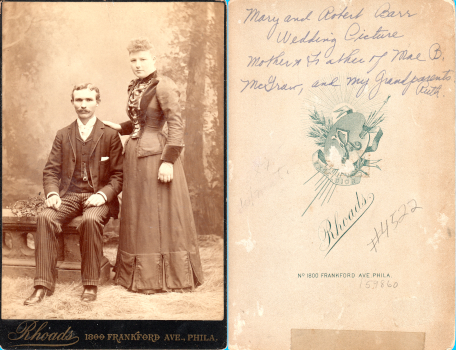 Rhoads 1800 FRANKFORD AVE., PHILA.
Mary and Robert Barr
Wedding Picture
Mother & Father of Mae B.
McGraw, and my Grandparents
Ruth
Rhoads
#4522
No 1800 FRANKFORD AVE PHILA.